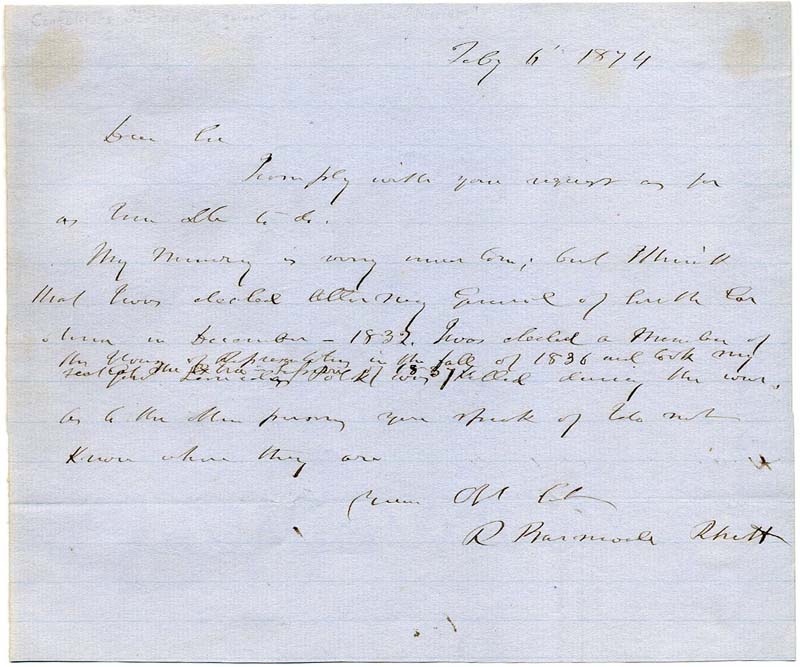 Feby 6 1874
Dear Sir
I comply with your request as far
as I am able to do.
My Memory is very uncertain; but I think
that I was elected Attorney General of South Car
olina in December – 1832. I was elected a Member of
the House of Representatives in the fall of 1836 and took my
seat in the Extra Session of 1837
killed during the war.
As to the other persons you speak of I do not
Know where they are
Your Obt
R Barnwell Rhett